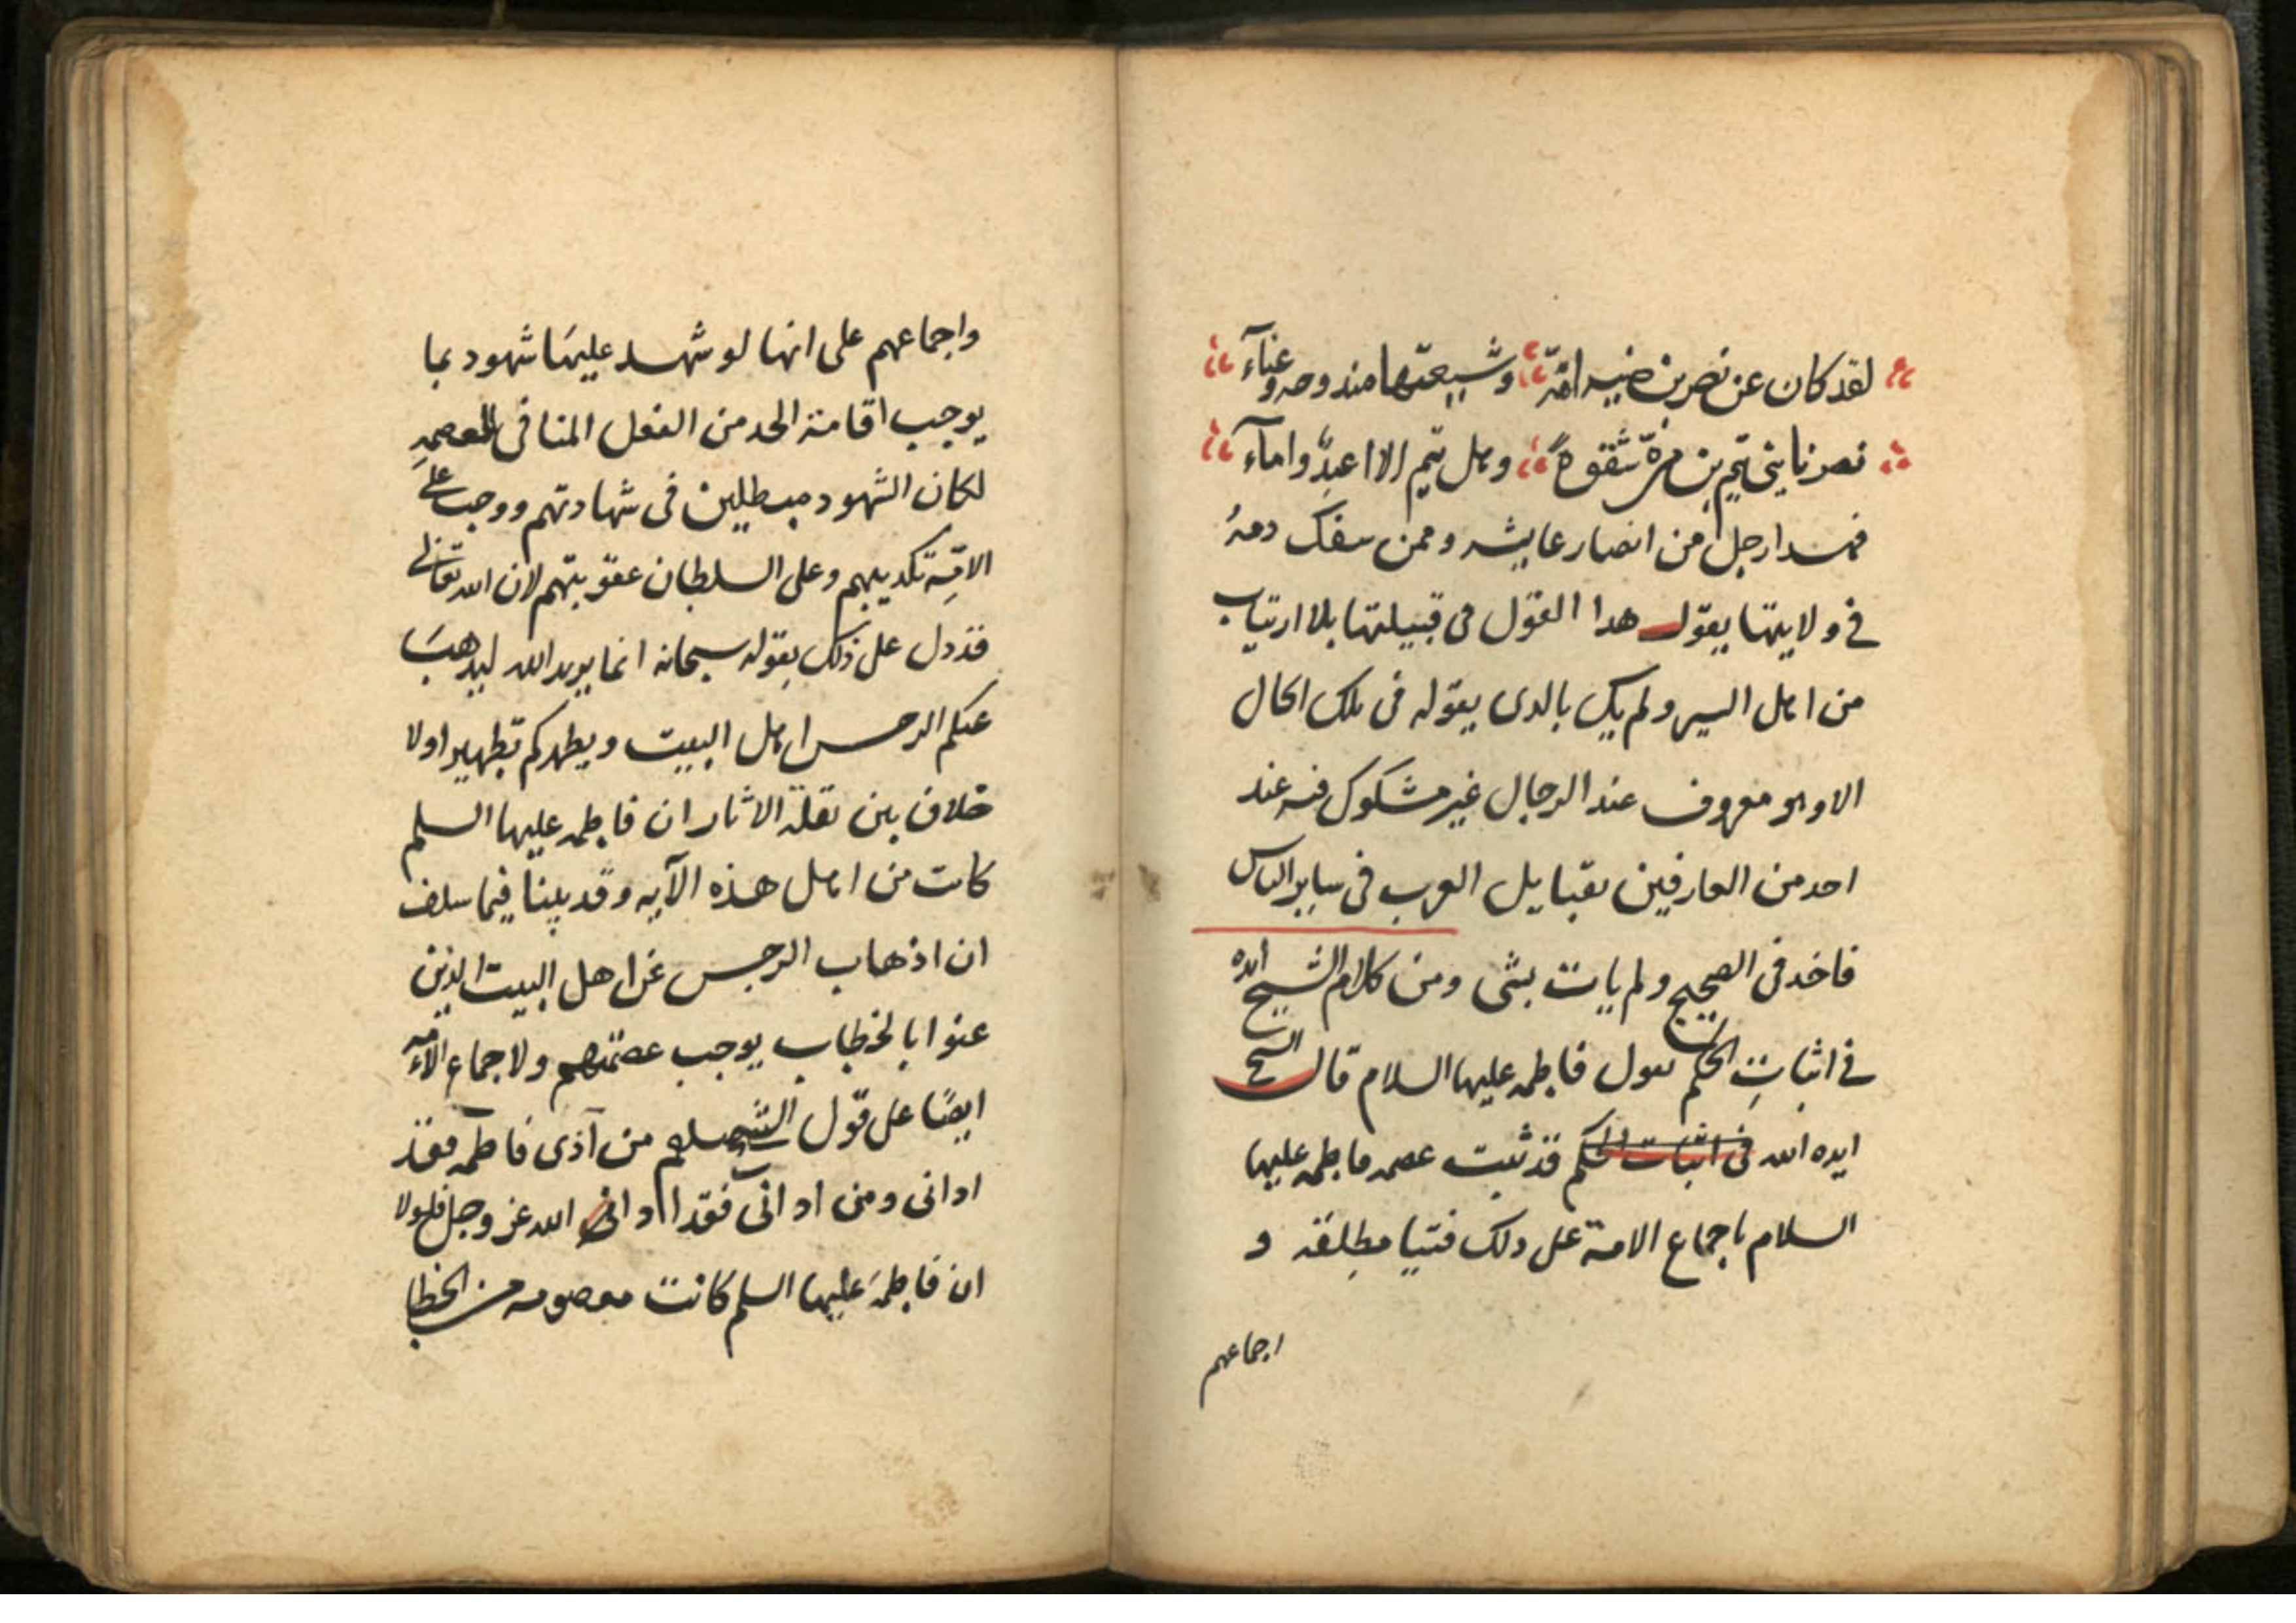 لقد كان عن نصر بن ضبه امّه وشيعتها مندوحه وغناء
نصرنا بنى تيم بن مرّة شقوة وهل تيم الا اعبدٌ واماء
فهدا رجل من انصار عايشه وممن سفك دمهُ
فى ولايتها يقول هدا القول فى قبيلتها بلا ارتياب
من اهل السير ولم يك بالدى يقوله فى تلك الحال
الا وهو معروف عند الرجال غير مشكوك فيه عند
احد من العارفين بقبايل العرب فى ساير الناس
فاخد فى الضجيج ولم يات بشى ومن كلام الشيخ ايده
فى اثبات الحكم بقول فاطمه عليها السلام قال الشيخ
ايده الله فى اثبات الحكم قد ثبت عصمه فاطمه عليها
السلام باجماع الامة على دلك فتيا مطلقه و
اجماعهم
واجماعهم على انها لو شهد عليها شهود بما
يوجب اقامة الحد من الفعل المنافى للعصمه
لكان الشهود مبطلين فى شهادتهم ووجب على
الامّة تكديبهم وعلى السلطان عقوبتهم لان الله تعالى
قد دل على ذلك بقوله سبحانه انما يريد الله ليدهب
عنكم الرجس اهل البيت ويطهركم تطهيرا ولا
خلاف بين نقلة الاثار ان فاطمه عليها السلم
كانت من اهل هذه الآيه وقد بينا فيما سلف
ان اذهاب الرجس عن اهل البيت الذين
عنوا بالخطاب يوجب عصمتهم ولاجماع الامّه
ايضًا على قول النبي صلعم من آذى فاطمه فقد
ادانى ومن ادانى فقد ادى الله عز وجل فلولا
ان فاطمة عليها السلم كانت معصومه من الخطا